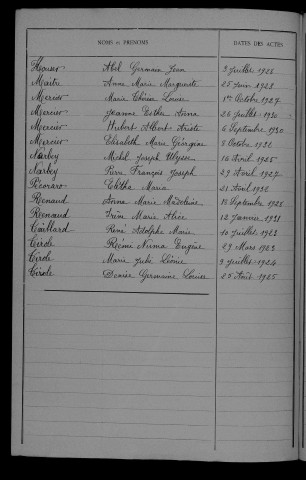 NOMS et PRÉNOMS DATES DES ACTES
Abel Germain Jean 3 Juillet
Maitre Anne Marie Marguerite 25 Juin 1923
Mercier Marie Thérèse Louise 1er Octobre 1927
Mercier Jeanne Esther Anna 26 Juillet 1930
Mercier Hubert Albert Ariste 6 Septembre 1930
Mercier Elisabeth Marie Georgine 8 Octobre
Narbey Michel Joseph Ulysse 16 Avril 1925
Narbey Pierre François Joseph 29 Avril 1927
Pecoraro Maria 21 Avril 1930
Renaud Anna Marie Madeleine Septembre
Renaud Marie Alice 12 Janvier 1931
René Adolphe Marie 10 Juillet 1923
Cirole Eugène 29 Mars 1923
Cirole Marie Julie 9 Juillet 1924
Cirole Denise Germaine Louise 25 Août 1925